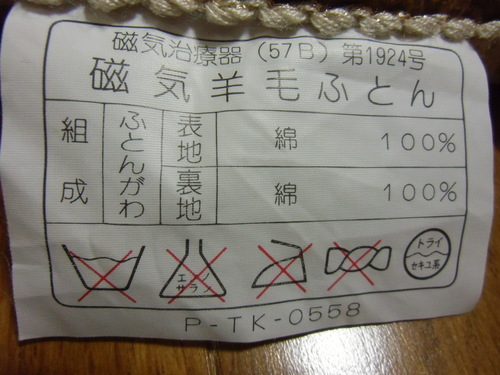 磁気治療器(57B)第1924号
磁気羊毛ふとん
組成 ふとんがわ 表地 綿 100%
裏地 綿 100%
エンソ サラシ
ドライ セキユ系
P-TK-0558